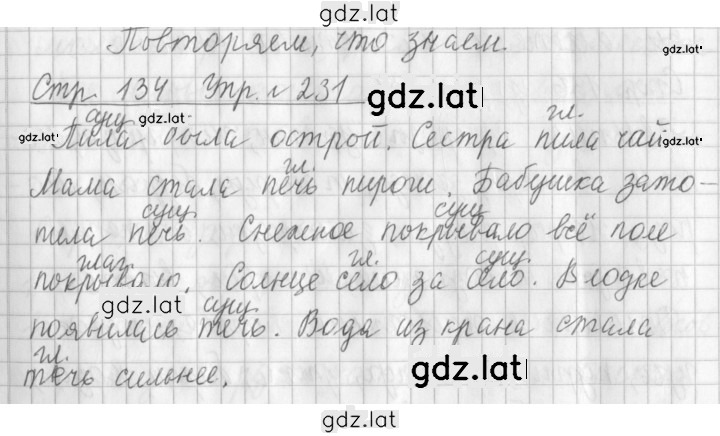 gdz.lat
Повторяем, что знаем.
gdz.lat
Стр. 134 Упр. № 231
gdz.lat
сущ. гл.
gdz.lat
gdz.lat
Пила была острой. Сестра пила чай.
гл.
Мама стала печь пироги. Бабушка зато-
сущ. сущ.
пила печь. Снежное покрывало всё поле
глаг. гл. сущ.
покрывало. Солнце село за село. В лодке
gdz.lat
сущ.
появилась течь. Вода из крана стала
гл.
течь сильнее.
gdz.lat
gdz.lat